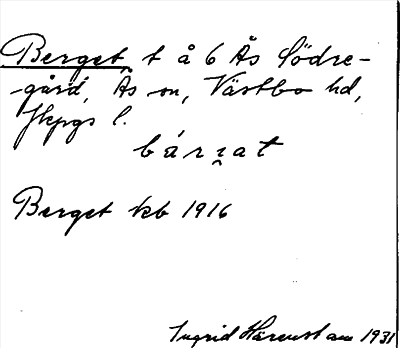 Berget, t å 6 Ås Södre-
-gård, Ås sn, Västbo hd,
Jkpgs l.
bárɪat
Berget kb 1916
Ingrid Härenstam 1931